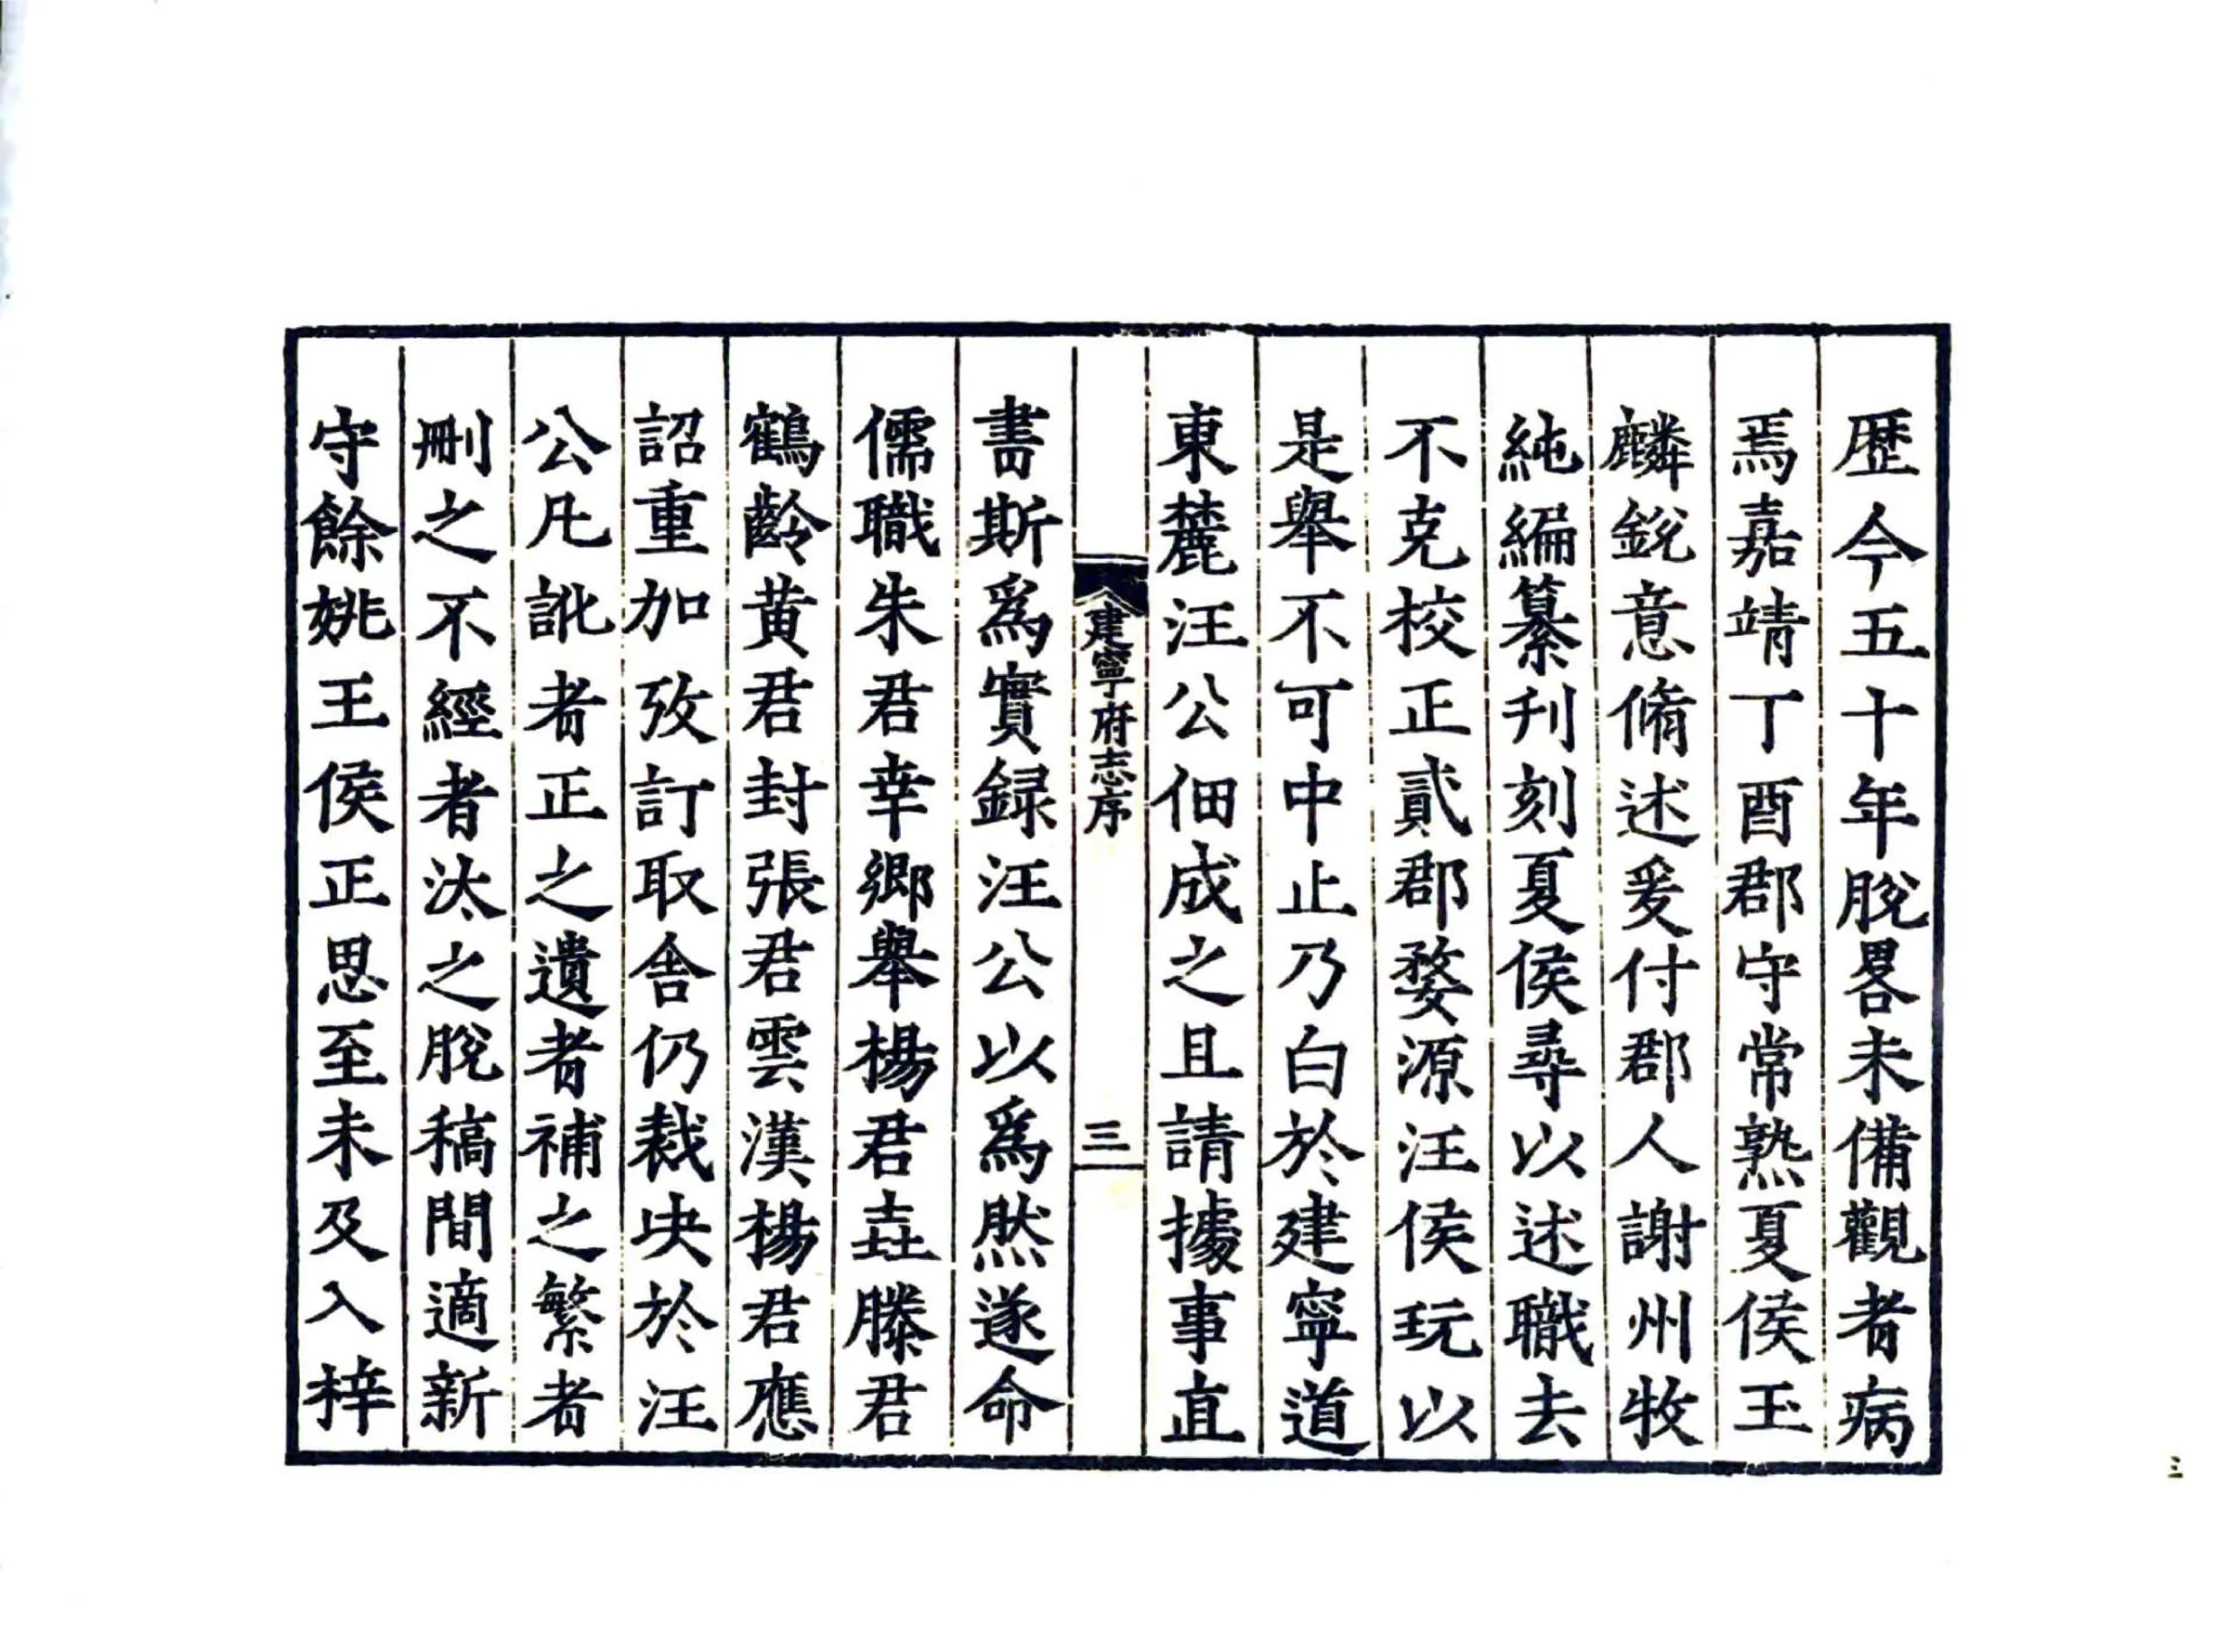 歷今五十年脫畧未備觀者病
焉嘉靖丁酉郡守常熟夏侯玉
麟銳意脩述爰付郡人謝州牧
純編纂刋刻夏侯尋以述職去
不克校正貳郡婺源汪侯玩以
是舉不可中止乃白於建寧道
東麓汪公佃成之且請據事直
建寧府志序
三
書斯爲實録汪公以爲然遂命
儒職朱君幸鄉舉楊君壵滕君
鶴齡黄君封張君雲漢楊君應
詔重加攷訂取舍仍裁决於汪
公凡訛者正之遺者補之繁者
刪之不經者汰之脫稿間適新
守餘姚王侯正思至未及入梓
三